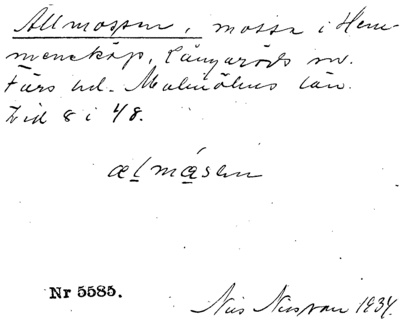 Allmossen, mosse i Hem-
meneköp, Långaröds sn.
Färs hd. Malmöhus län.
Lid 8 i 48.
ælmåsen
Nr 5585.
Nils Nilsson 1934.